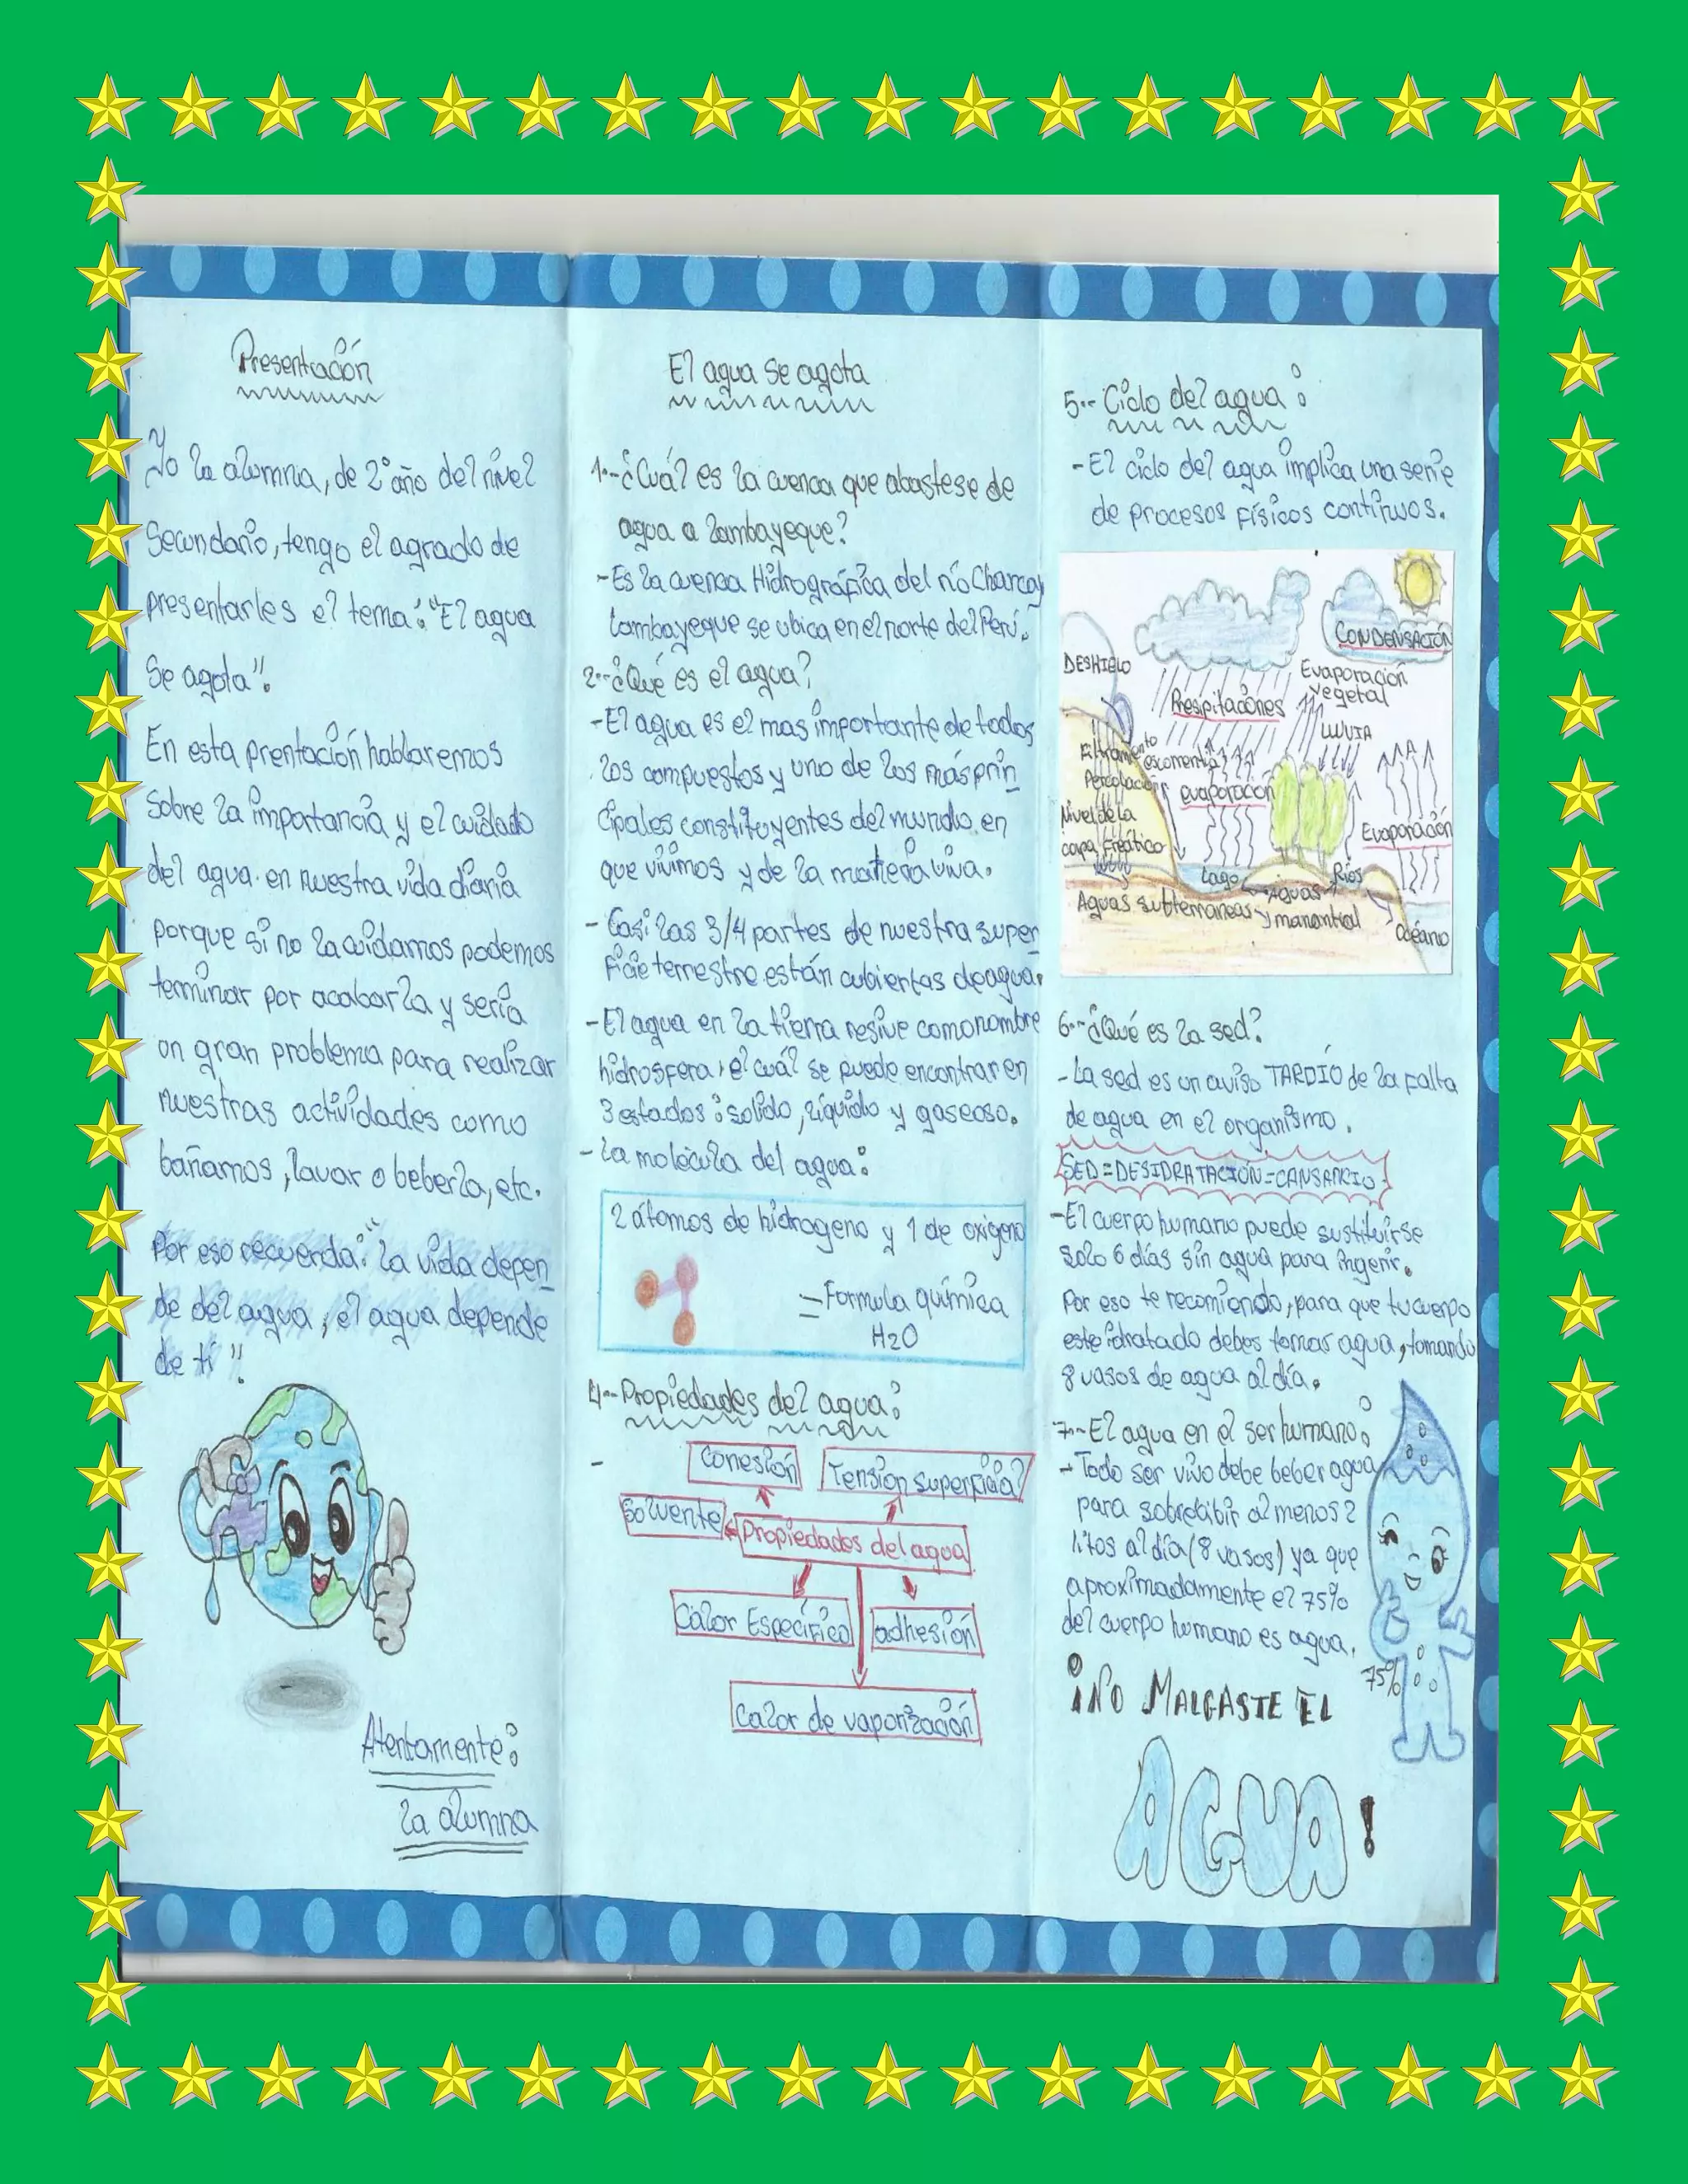 Presentación
Yo la alumna, de 2° año del nivel
Secundario, tengo el agrado de
presentarles el tema: "El agua
Se agota".
En esta prentación hablaremos
sobre la importancia y el cuidado
del agua en nuestra vida diaria
porque si no la cuidamos podemos
terminar por acabarla y sería
un gran problema para realizar
nuestras actividades como
bañarnos, lavar o beberla, etc.
Por eso recuerda: "la vida depen
de del agua, el agua depende
de ti".
Atentamente:
la alumna
El agua se agota
1.-¿Cuál es la cuenca que abastese de
agua a lambayeque?
-Es la cuenca Hidrográfica del río Chancay
lambayeque se ubica en el norte del Perú.
2.-¿Qué es el agua?
-El agua es el mas importante de todos
los compuestos y uno de los más prin
cipales constituyentes del mundo en
que vivimos y de la matiera viva.
- Casi las 3/4 partes de nuestra super
ficie terrestre están cubiertas de agua.
-El agua en la tierra resive como nombre
hidrosfera, el cuál se puede encontrar en
3 estados: solido, líquido y gaseoso.
- la molécula del agua:
2 átomos de hidrogeno y 1 de oxigeno
=Formula química
H2O
4.-Propiedades del agua:
-
Conesión
Tension superficial
Solvente
Propiedades del agua
Calor Específico
adhesión
Calor de vaporización
5.- Ciclo del agua:
-El ciclo del agua implica una serie
de procesos físicos continuos.
CONDENSACIÓN
DESHIELO
Evaporación
vegetal
Prespitaciones
LLUVIA
Percolación
evaporacion
Nivel de la
capa Freático
Evaporación
Lago
Ríos
Aguas subterraneas y
Aguas
manantial
Océano
6.-¿Qué es la sed?
-La sed es un aviso TARDÍO de la falta
de agua en el organismo.
SED=DESIDRATACIÓN=CANSANCIO
-El cuerpo humano puede sustituirse
solo 6 días sin agua para ingerir.
Por eso te recomiendo, para que tu cuerpo
este idratado debes tomar agua, tomando
8 vasos de agua al día.
7.-El agua en el ser humano:
- Todo ser vivo debe beber agua
para sobrebibir al menos 2
litos al día (8 vasos) ya que
aproximadamente el 75%
del cuerpo humano es agua.
75%
¡NO MALGASTE EL
AGUA!